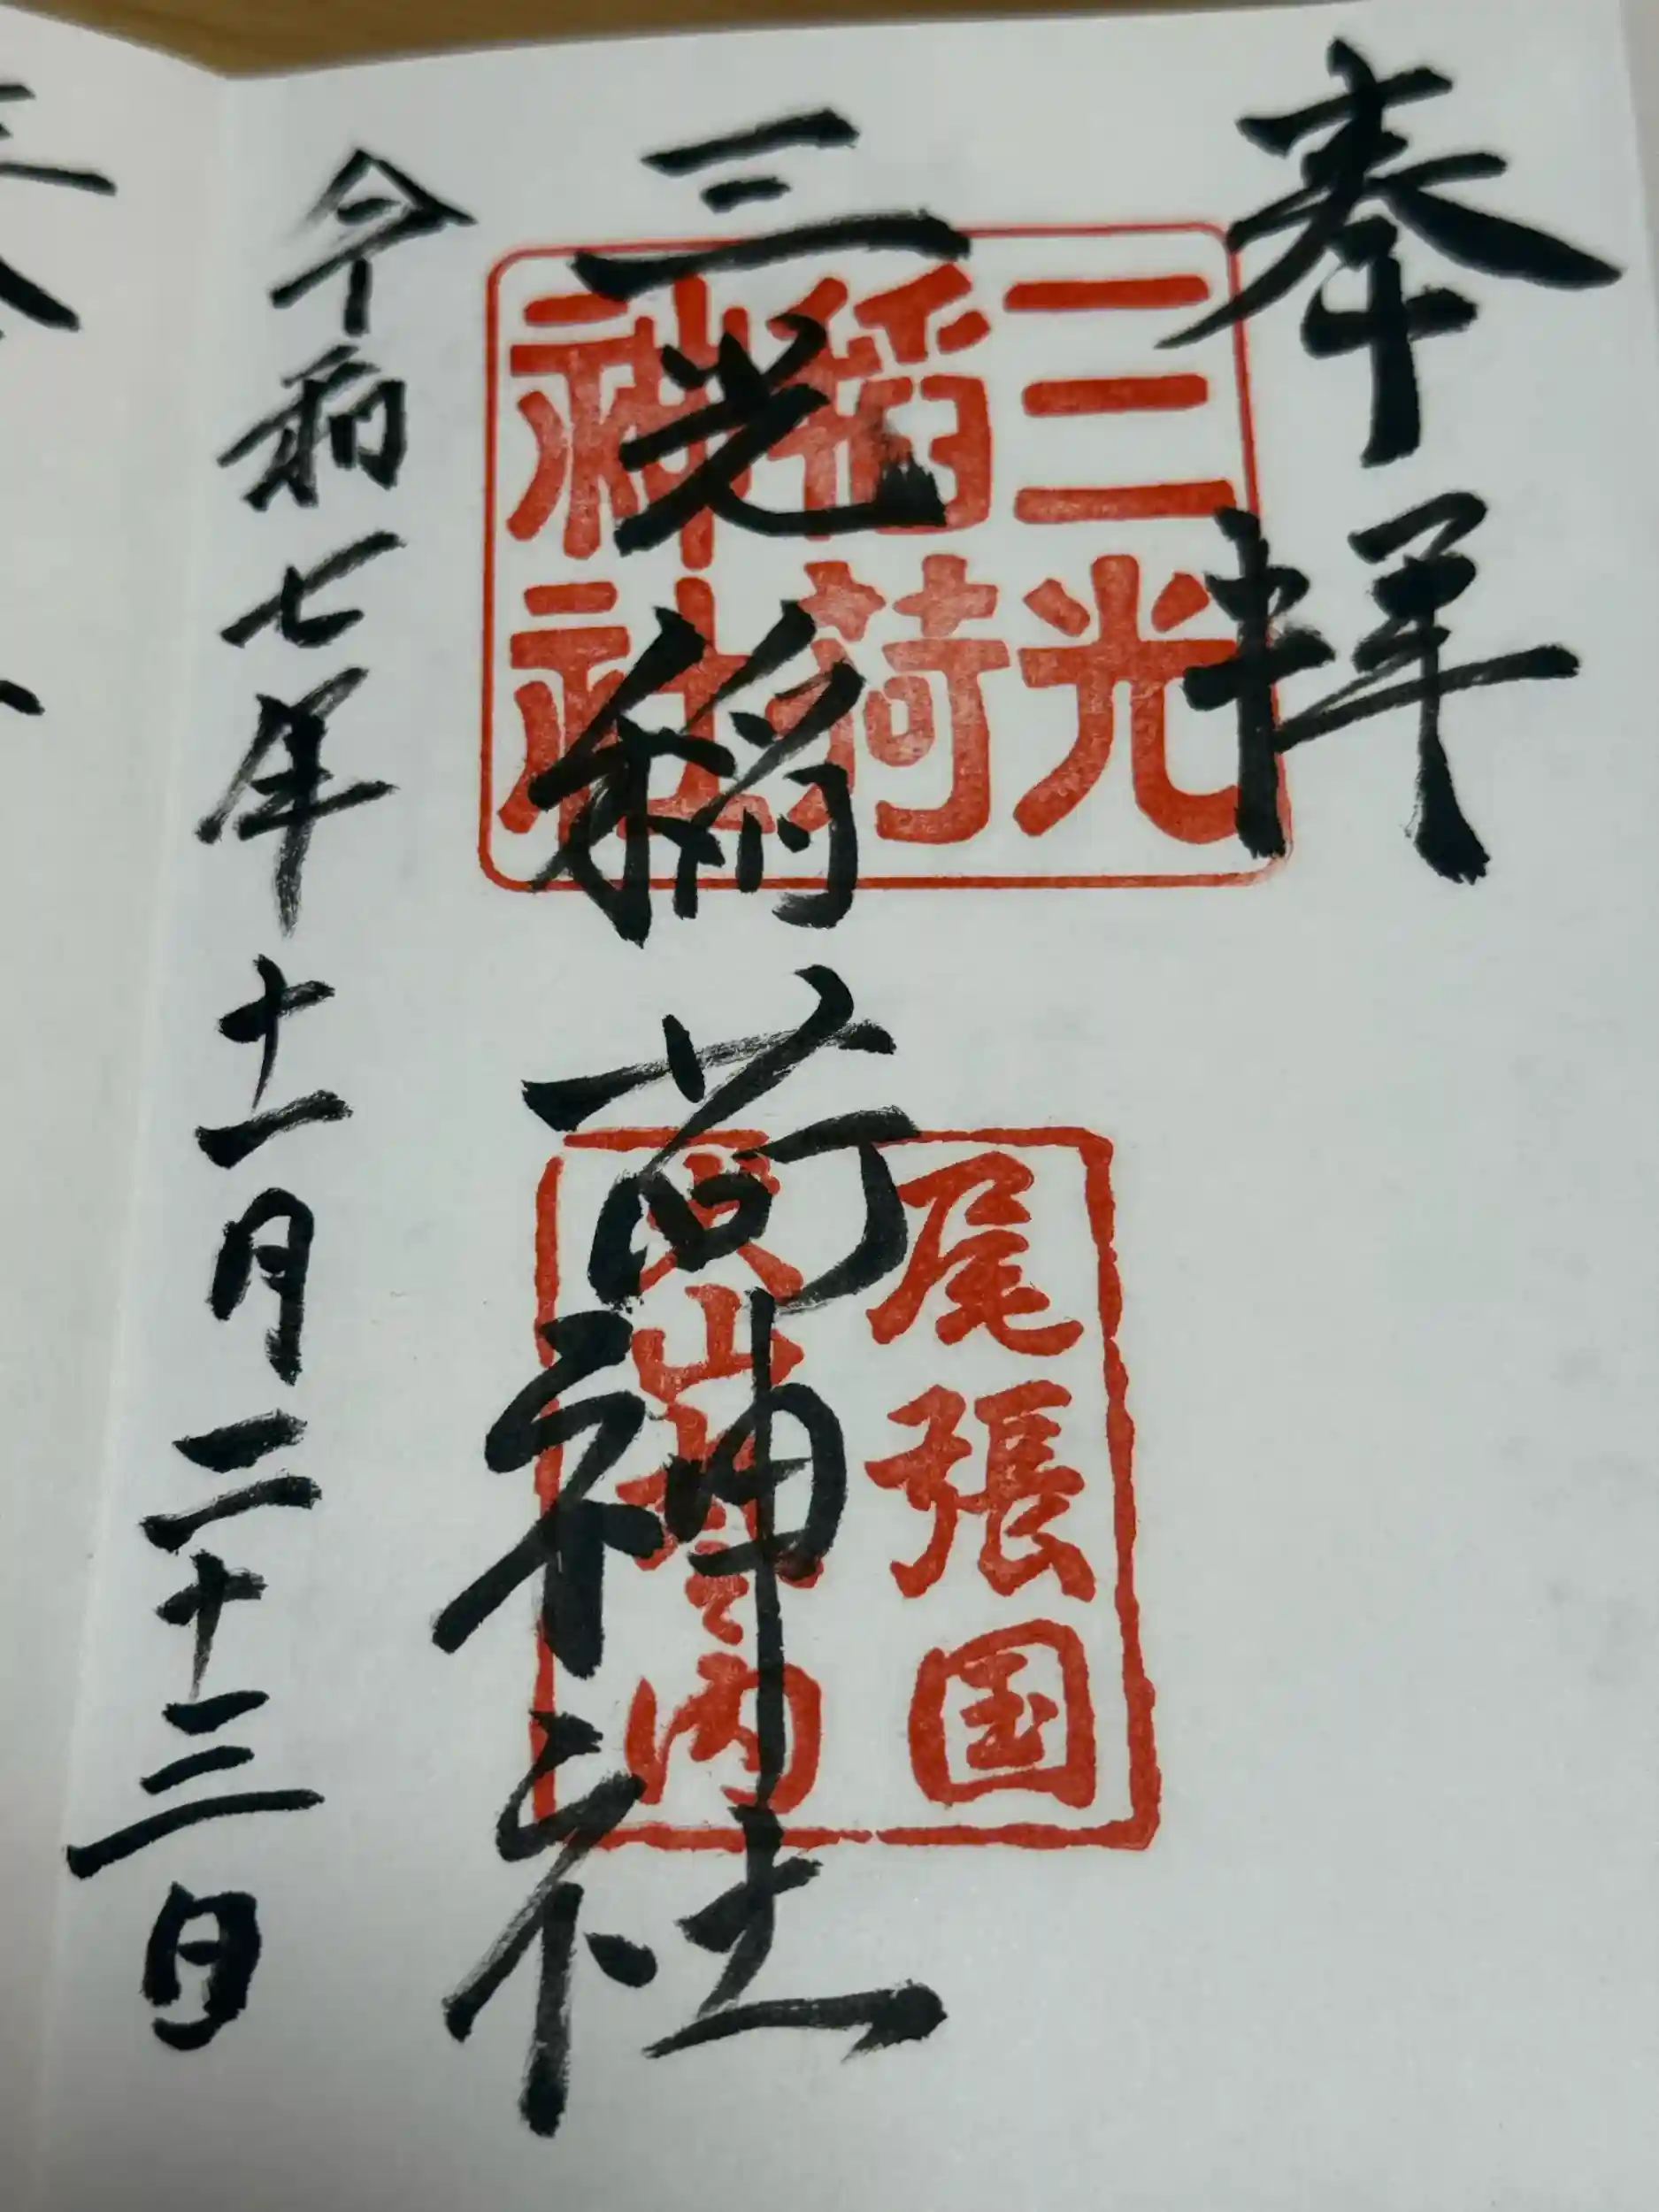 奉拝
三光稲荷神社
令和七年十一月二十三日
三光
稲荷
神社
尾張国
犬山城之内